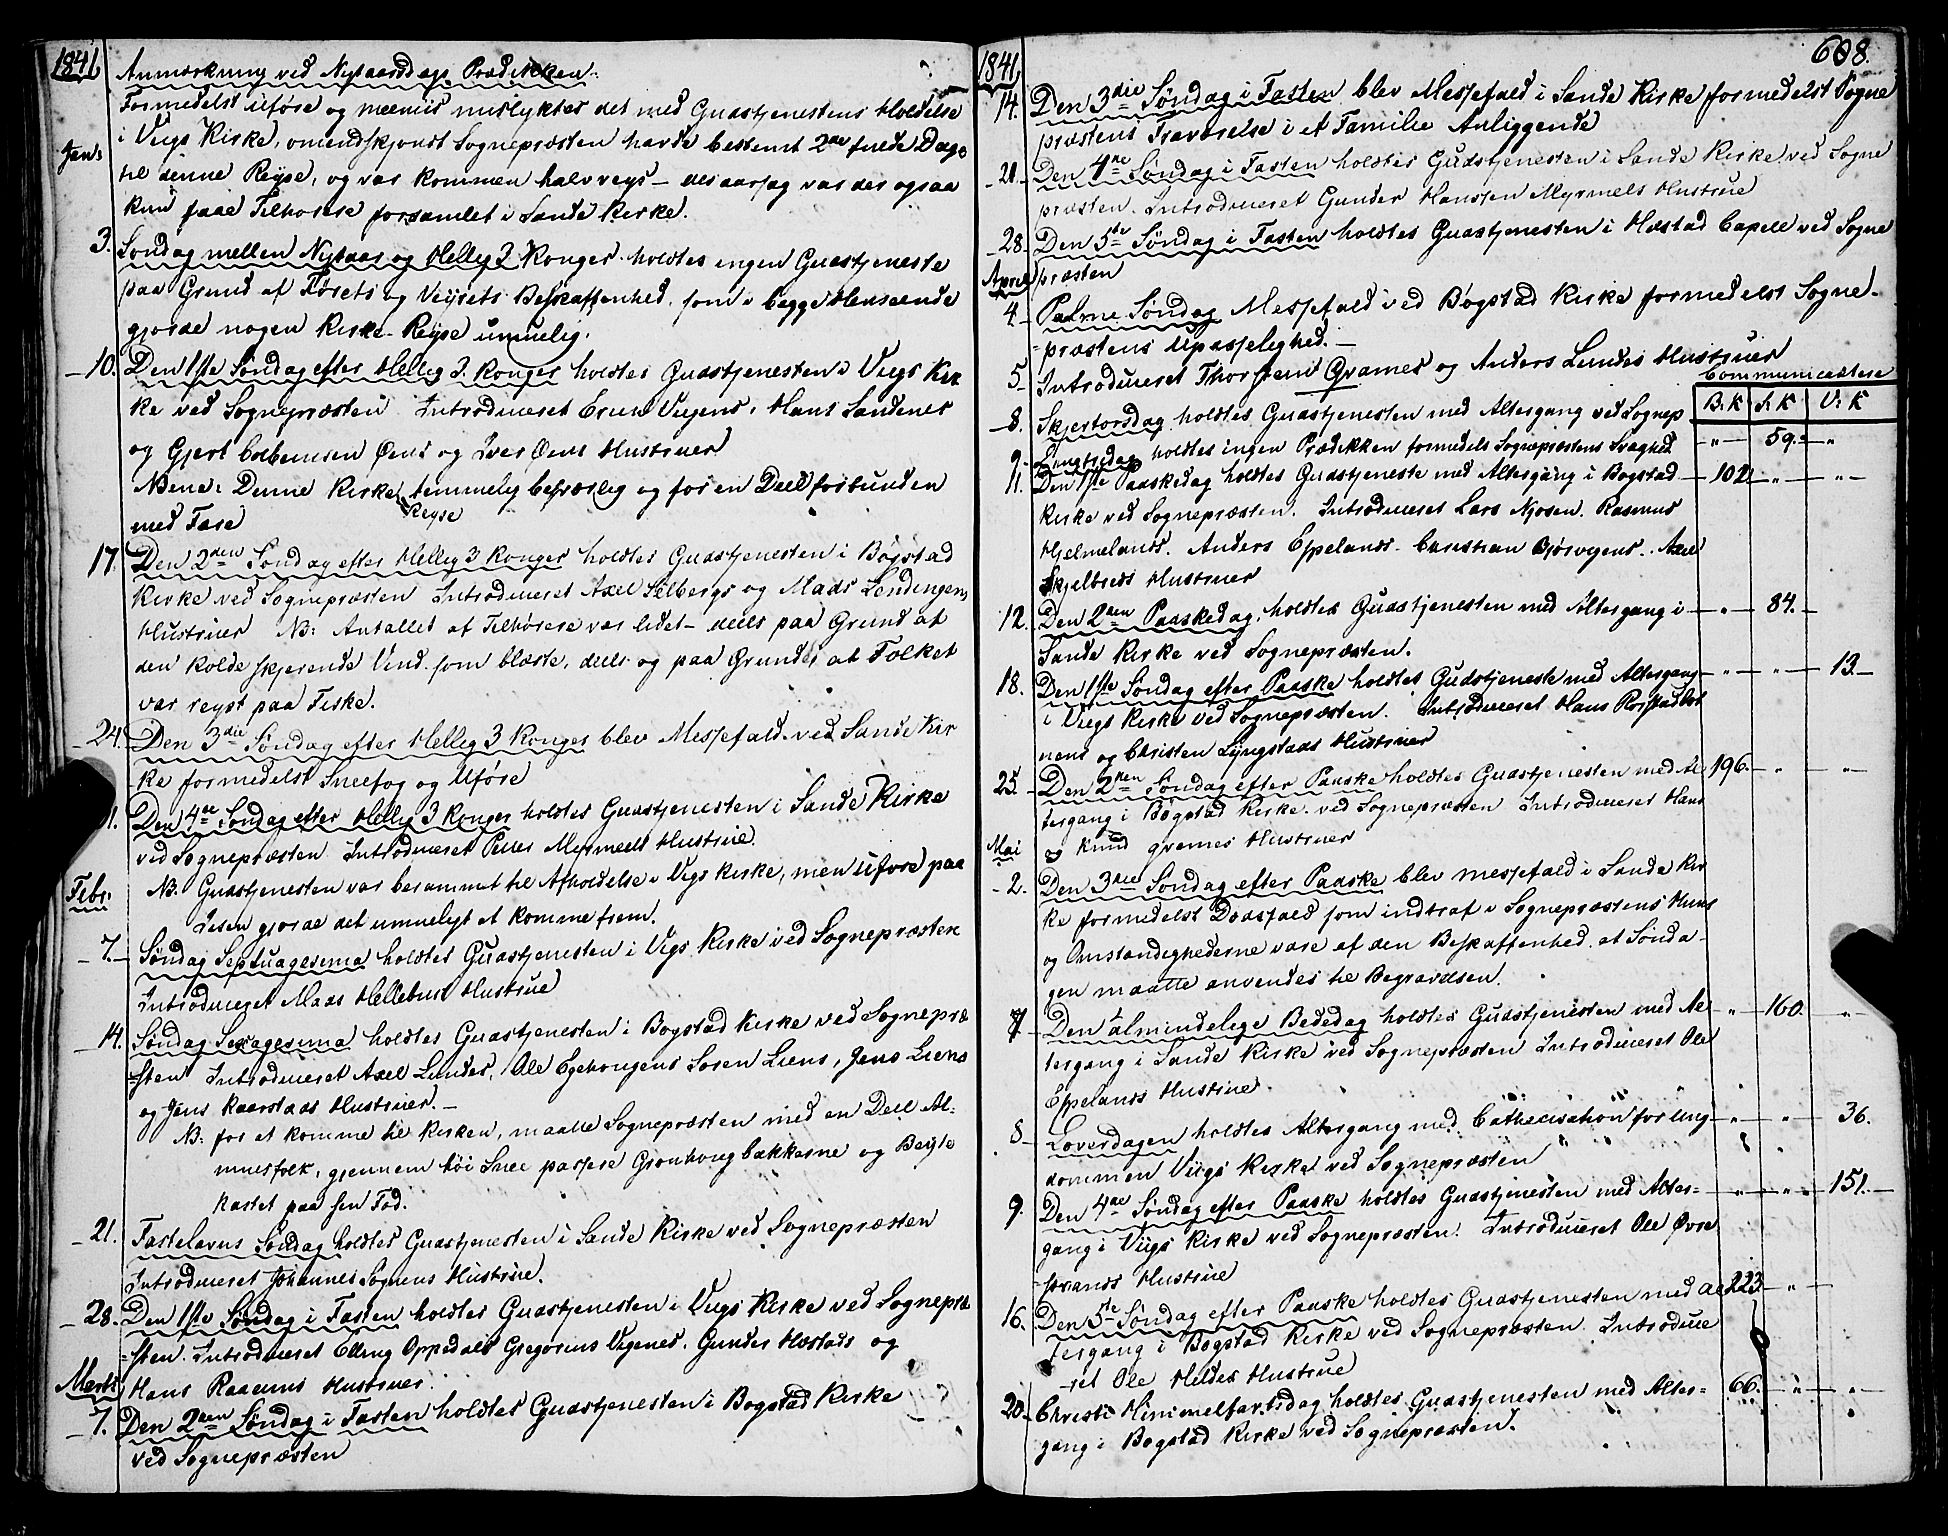 1841 Anmærkning ved Nytaarsdags Prædikken.
Formedelst uføre og meeniis mislyktes det med Gudstjenestens Holdelse
i Viigs Kirke, omendskjøndt Sognepræsten havde bestemt 2de fulde Dage
Jan:
til denne Reyse, og var kommen halvveys - desaarsag var der ogsaa
kun faae Tilhørere forsamlet i Sande Kirke.
3. Søndag mellem Nytaar og Hellig 3 Konger holdtes ingen Gudstjeneste
paa Grund af Førets og Veyrets Beskaffenhed, som i begge Henseende
gjorde nogen Kirke-Reyse umuelig.
10. Den 1ste Søndag efter Hellig 3 Konger holdtes Gudstjenesten i Viigs Kir
ke ved Sognepræsten Introduceret Erich Vigens, Hans Sandenes
og Gjert Colbensen Øens og Iver Øens Hustruer
NBene: Denne Kirke Reyse temmelig besværlig og for en Deel forbunden
med Fare
17. Den 2den Søndag efter Hellig 3 Konger holdtes Gudstjenesten i Bogstad
Kirke ved Sognepræsten Introduceret Axel Silbergs og Mads Lendingens
Hustruer NB: Antallet af Tilhørere var lidet - deels paa Grund af
den kolde skjerende Vind som blæste, deels og paa Grund at Folket
var reyst paa Fiske.
24. Den 3die Søndag efter Hellig 3 Konger blev Messefald ved Sande Kir
ke formedelst Sneefog og Uføre
1. Den 4de Søndag efter Hellig 3 Konger holdtes Gudstjenesten i Sande Kirke
ved Sognepræsten Introduceret Peder Myrmels Hustrue.
Febr: NB: Gudstjenesten var berammet til Afholdelse i Vigs Kirke, men Uføre paa
Isen gjorde det umueligt at komme frem.
7. Søndag Septuagesima holdtes Gudstjenesten i Vigs Kirke ved Sognepræsten
Introduceret Mads Hellebust Hustrue
14. Søndag Sexagesima holdtes Gudstjenesten i Bogstad Kirke ved Sognepræ
-sten Introduceret Axel Lundes, Ole Egehougens Søren Liens, Jens Liens
og Jens Kaarstads Hustruer.
NB: for at komme til Kirken, maatte Sognepræsten med en Deel Al-
muesfolk, gjennem høi Snee passere Grønhougbakkerne og Beyle
kastet paa sin Fod.
21. Fastelavns Søndag holdtes Gudstjenesten i Sande Kirke ved Sognepræsten
Introduceret Johannes Sognens Hustrue.
28. Den 1ste Søndag i Fasten holdtes Gudstjenesten i Viigs Kirke ved Sognepræ
-sten. Introduceret Elling Oppedals Gregorius Vigenes, Gunder Hæstads og
Marts Hans Raaeims Hustruer.
7. Den 2den Søndag i Fasten holdtes Gudstjenesten i Bogstad Kirke
ved Sognepræsten
1841 608.
14. Den 3die Søndag i Fasten blev Messefald i Sande Kirke formedelst Sogne
præstens Fraværelse i et Familie Anliggende
21. Den 4de Søndag i Fasten holdtes Gudstjenesten i Sande Kirke ved Sogne
præsten. Introduceret Gunder Hanssen Myrmels Hustrue
28. Den 5te Søndag i Fasten holdtes Gudstjenesten i Hæstad Capell ved Sogne
April præsten
4. Palme Søndag Messefald ved Bogstad Kirke formedelst Sogne-
-præstens Upasselighed.
5. Introduceret Thorstein Qvames og Anders Lundes Hustruer
Communicantere
B:K S:K V:K
8. Skjertorsdag holdtes Gudstjenesten med Altergang ved Sognep - " - 59. - "
9. Langfredag holdtes ingen Prædikken formedels Sognepræstens Svaghed
11. Den 1ste Paaskedag holdtes Gudstjeneste med Altergang i Bogstad - 102 - " - "
Kirke ved Sognepræsten. Introduceret Lars Njøsen, Rasmus
Hjelmelands, Anders Espelands, Christian Bjørvigens, Axel
Skjelbreds Hustruer
12. Den 2den Paaskedag, holdtes Gudstjenesten med Altergang i - " - 84. -
Sande Kirke ved Sognepræsten.
18. Den 1ste Søndag efter Paaske holdtes Gudstjeneste med Altergang - " - " - 13. -
i Viigs Kirke ved Sognepræsten. Introduceret Hans
nens og Christen Lyngstads Hustruer
25. Den 2den Søndag efter Paaske holdtes Gudstjenesten med Al 196. - " - "
tergang i Bogstad Kirke ved Sognepræsten Introduceret Hans
Mai og Knud Qvames Hustruer
2. Den 3die Søndag efter Paaske blev Messefald i Sande Kir
ke formedelst Dødsfald som indtraf i Sognepræstens Huus
og Omstændighederne vare af den Beskaffenhed, at Sønda-
gen maatte anvendes til Begravelsen.
7. Den almindelige Bededag holdtes Gudstjenesten med Al - " - 160. - "
tergang i Sande Kirke ved Sognepræsten Introduceret Ole
Espelands Hustrue.
8. Løverdagen holdtes Altergang med Cathecisation for Ung - " - " - 36.
dommen Viigs Kirke ved Sognepræsten
9. Den 4de Søndag efter Paaske holdtes Gudstjenesten med Alter- - " - " - 151.
gang i Viigs Kirke ved Sognepræsten. Introduceret Ole Øvre
-strands Hustrue
16. Den 5te Søndag efter Paaske holdtes Gudstjenesten med Al 223 - "
tergang i Bogstad Kirke ved Sognepræsten. Introduce
-ret Ole Heldes Hustrue
20. Christi Himmelfartsdag holdtes Gudstjenesten med Alter- 66. - " - "
gang i Bogstad Kirke ved Sognepræsten.